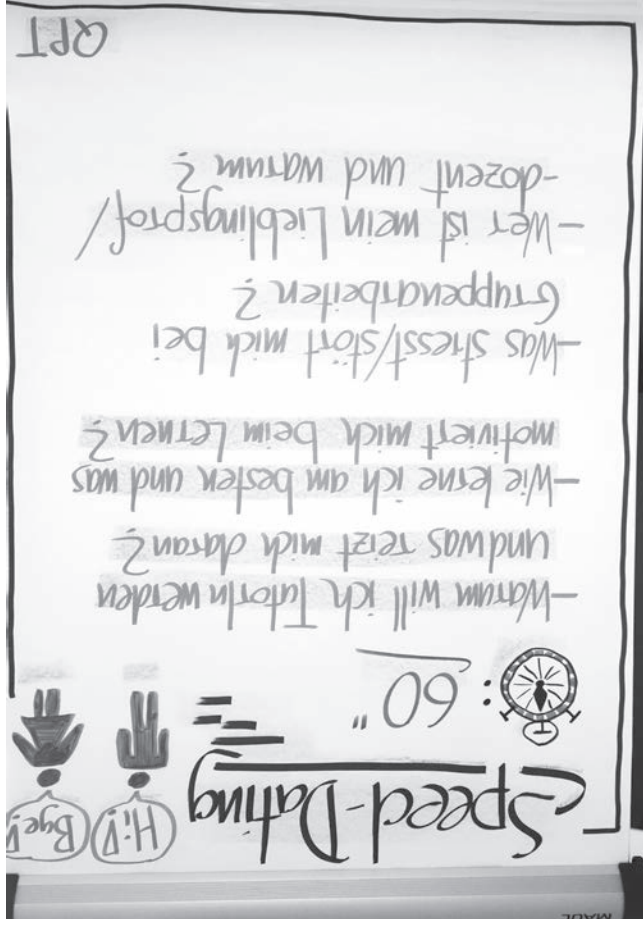 Speed-Dating
Hi!
Bye!
: 60"
-Warum will ich TutorIn werden
und was reizt mich daran?
-Wie lerne ich am besten und was
motiviert mich beim Lernen?
-Was stresst/stört mich bei
Gruppenarbeiten?
-Wer ist mein Lieblingsprof/
-dozent und warum?
QPT